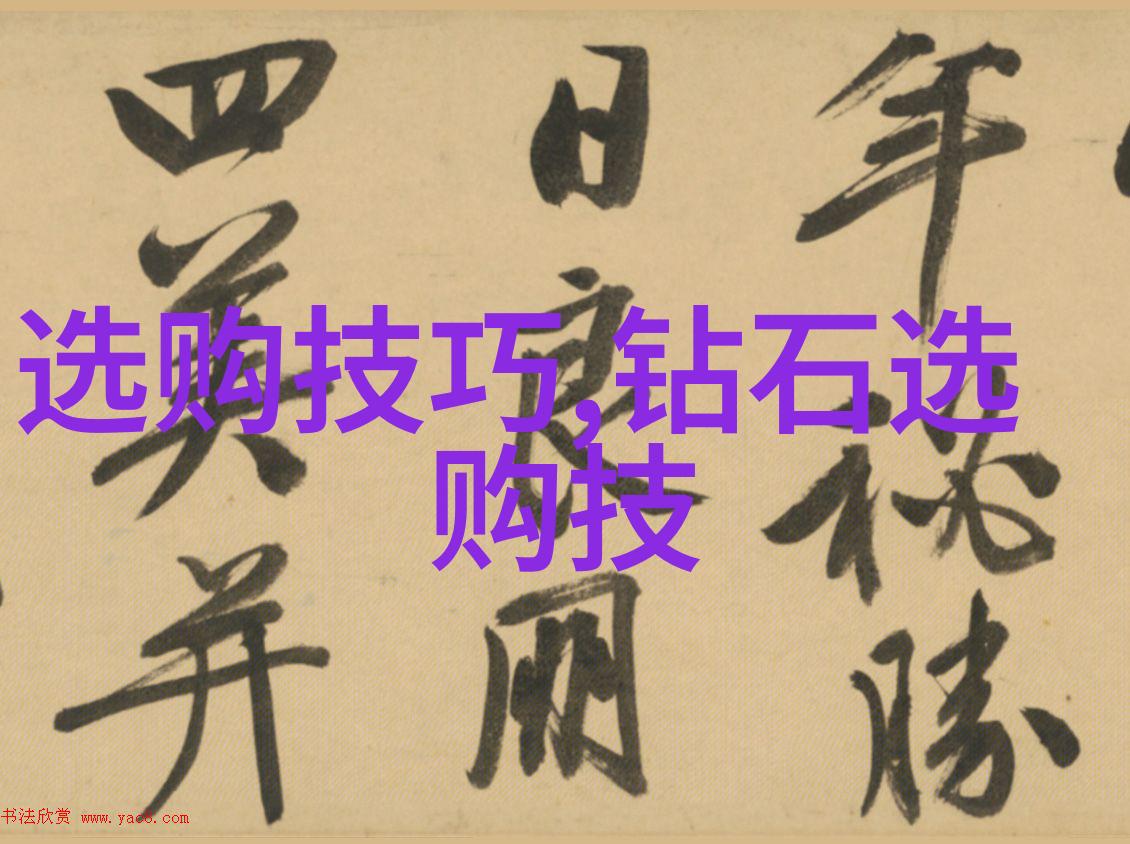 年 勝
日良
四 并
选购技巧,钻石选
购技
书法欣赏 www.yac8.com